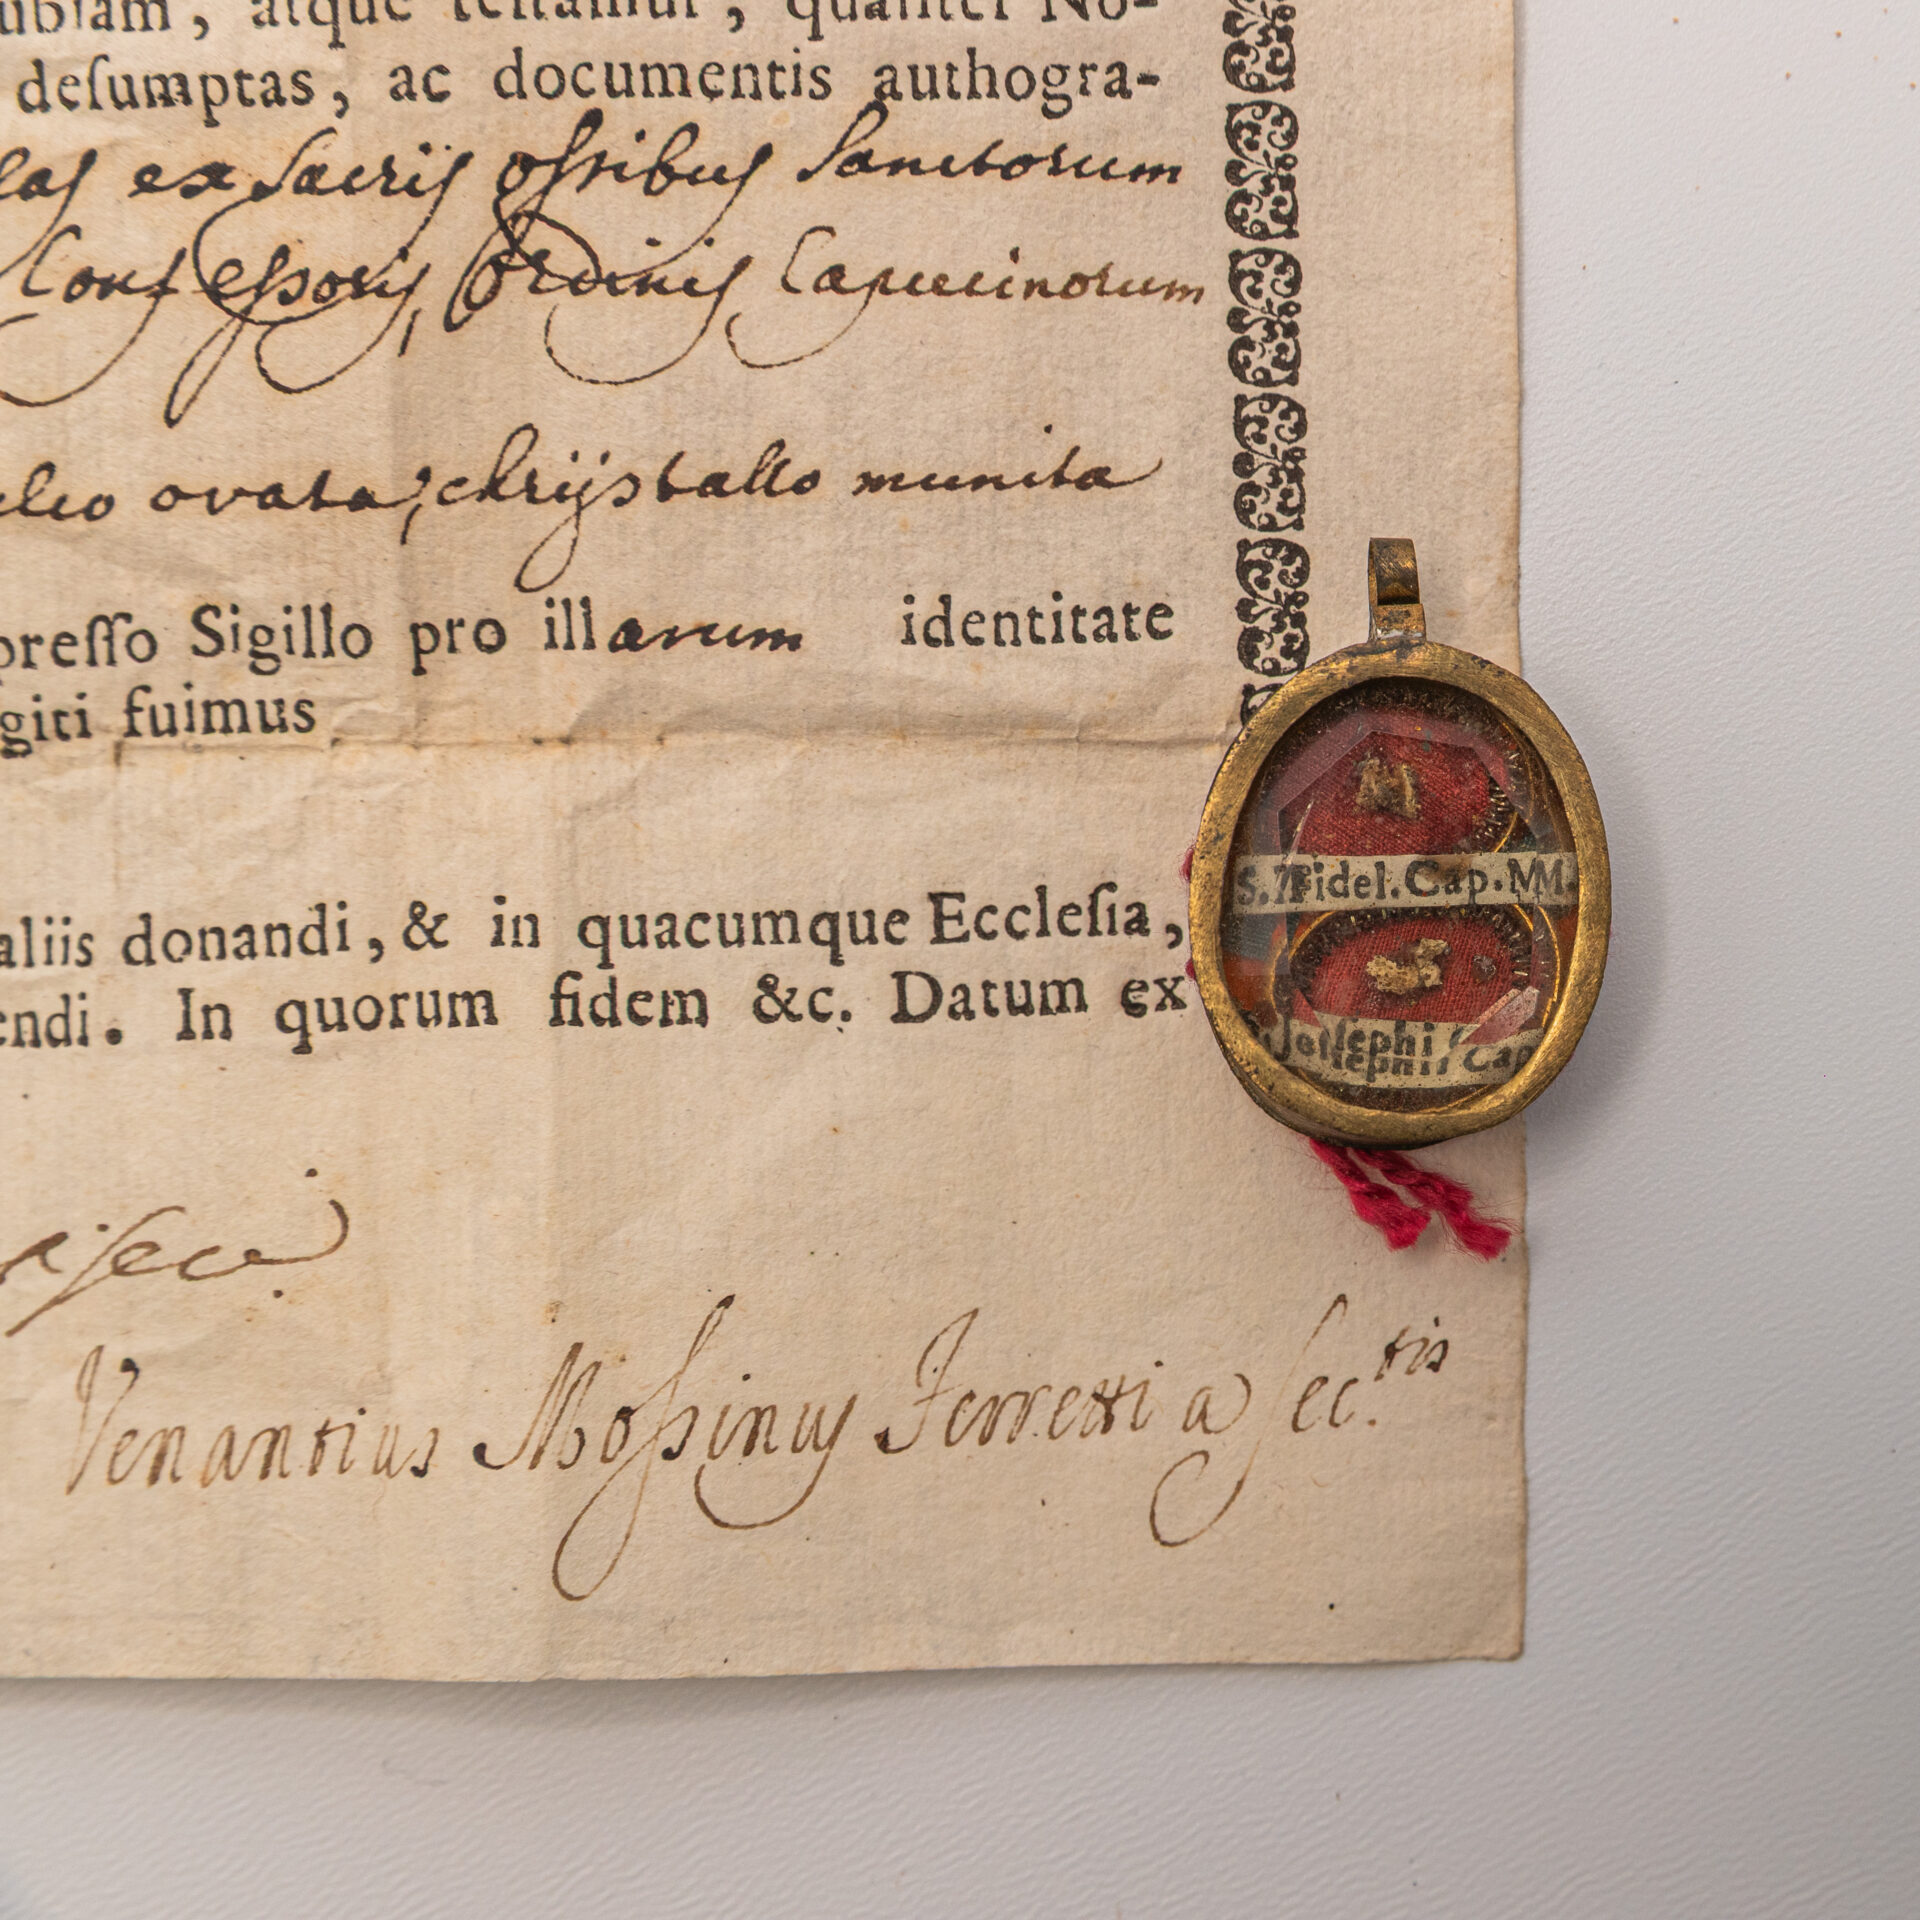 ubiam, atque testamur, qualiter No-
desumptas, ac documentis authogra-
las ex Sacris ossibus Sanctorum
Confessoris, Ordinis Capuccinorum
ovata, chrijstallo munita
presso Sigillo pro illarum identitate
giti fuimus
aliis donandi, & in quacumque Ecclesia,
endi. In quorum fidem &c. Datum ex
Venantius Mossinus Ferretti a Sec.tis
S. Fidel. Cap. M.
Josephi Cap